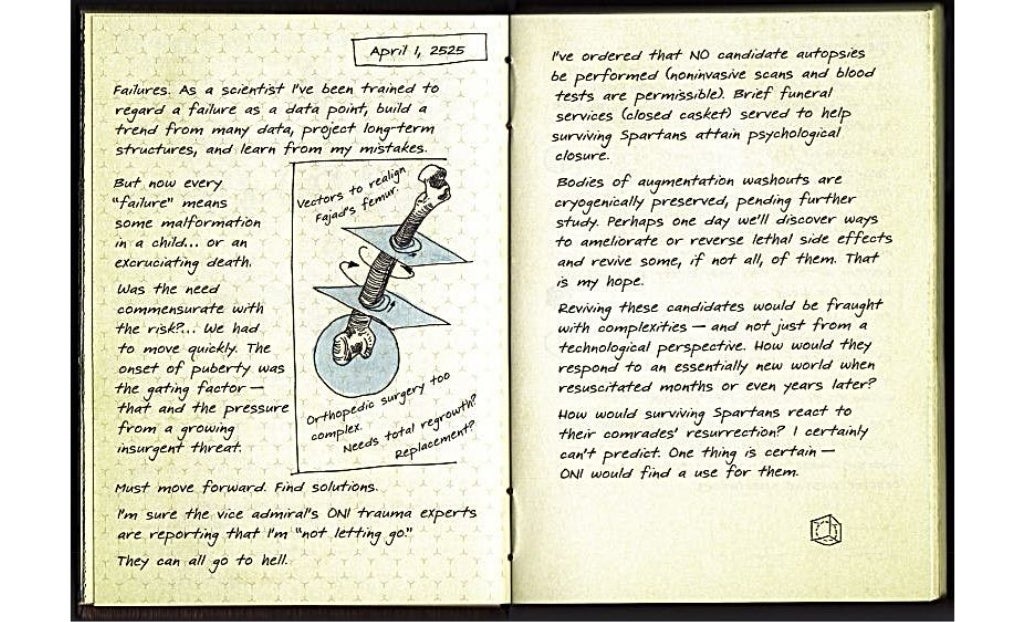 April 1, 2525
Failures. As a scientist I've been trained to
regard a failure as a data point, build a
trend from many data, project long-term
structures, and learn from my mistakes.
But now every
"failure" means
some malformation
in a child... or an
excruciating death.
Was the need
commensurate with
the risk?... We had
to move quickly. The
onset of puberty was
the gating factor —
that and the pressure
from a growing
insurgent threat.
Vectors to realign
Fajad's femur.
Orthopedic surgery too
complex.
Needs total regrowth?
Replacement?
Must move forward. Find solutions.
I'm sure the vice admiral's ONI trauma experts
are reporting that I'm "not letting go."
They can all go to hell.
I've ordered that NO candidate autopsies
be performed (noninvasive scans and blood
tests are permissible). Brief funeral
services (closed casket) served to help
surviving Spartans attain psychological
closure.
Bodies of augmentation washouts are
cryogenically preserved, pending further
study. Perhaps one day we'll discover ways
to ameliorate or reverse lethal side effects
and revive some, if not all, of them. That
is my hope.
Reviving these candidates would be fraught
with complexities — and not just from a
technological perspective. How would they
respond to an essentially new world when
resuscitated months or even years later?
How would surviving Spartans react to
their comrades' resurrection? I certainly
can't predict. One thing is certain —
ONI would find a use for them.